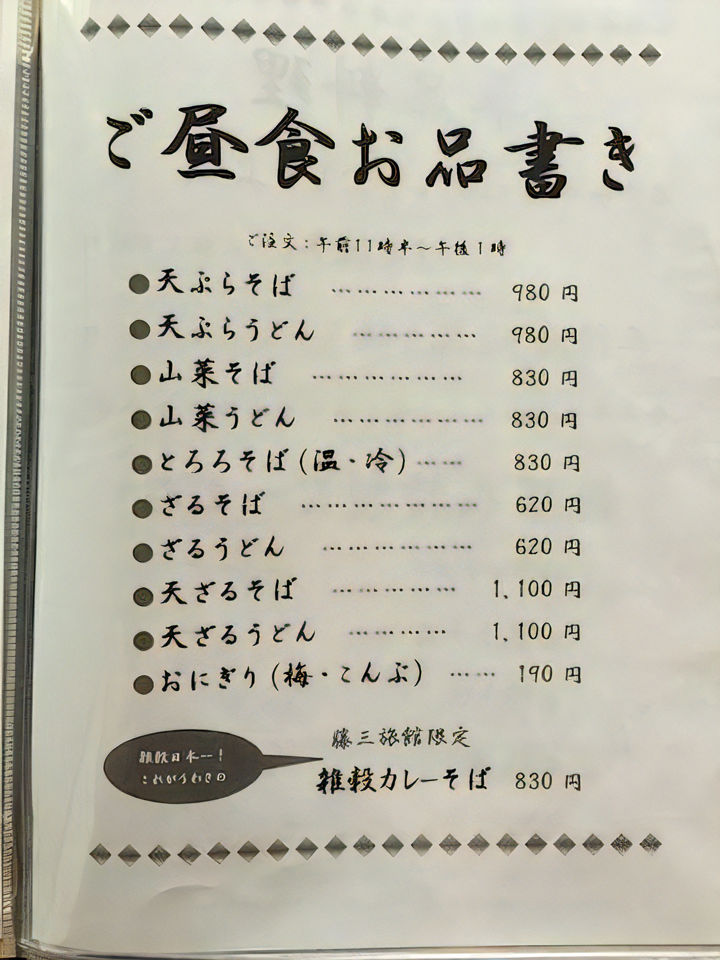 ご昼食お品書き
ご注文：午前11時半～午後1時
●天ぷらそば ……………… 980円
●天ぷらうどん …………… 980円
●山菜そば ……………… 830円
●山菜うどん ……………… 830円
●とろろそば(温・冷) …… 830円
●ざるそば ………………… 620円
●ざるうどん ……………… 620円
●天ざるそば …………… 1,100円
●天ざるうどん ………… 1,100円
●おにぎり(梅・こんぶ) …… 190円
藤三旅館限定
日本一！
雑穀カレーそば 830円